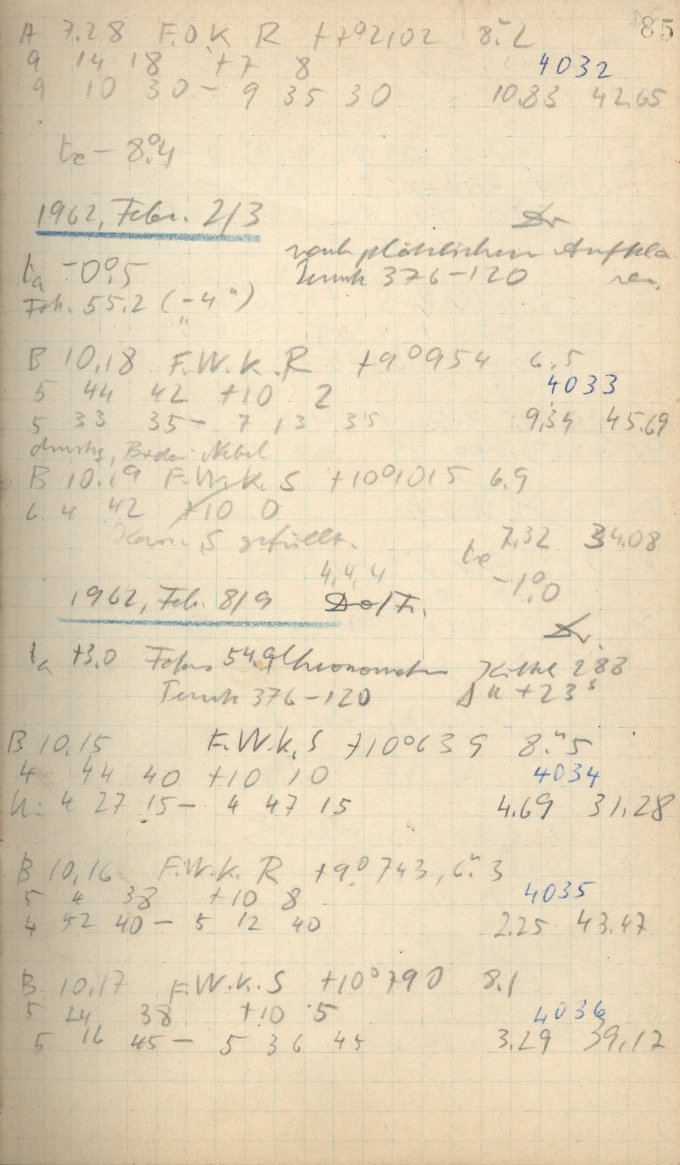 85
A 7.28 F.D K R +7°2102 8.ᵐ2
9 14 18 +7 8 4032
9 10 30 – 9 35 30 10.83 42.65
te – 8°.4
1962, Febr. 2/3 Dr
ta –0°.5 nach plötzlichem Aufkla
Fok. 55.2 (–4") 376–120 ren.
B 10,18 F.W.K.R +9°954 6.5
5 44 42 +10 2 4033
5 33 35 – 7 13 35 9,34 45.69
dunstig, Boden Nebel
B 10.19 F.W.K.S +10°1015 6.9
6 4 42 +10 0
Kam. S gefüllt. te 7,32 34.08
4,4,4 –1°.0
1962, Feb. 8/9 Do/Fr.
Dr.
ta +3.0 Fokus 54.9 Chronometer 283
376–120 Δu +23ˢ
B 10,15 F.W.K,S +10°639 8.ᵐ5
4 44 40 +10 10 4034
U: 4 27 15 – 4 47 15 4.69 31.28
B 10,16 F.W.K. R +9°743, 6.ᵐ3
5 4 38 +10 8 4035
4 52 40 – 5 12 40 2.25 43.47
B 10,17 F.W.K.S +10°790 8.1
5 24 38 +10 5 4036
5 16 45 – 5 36 45 3.29 39,12